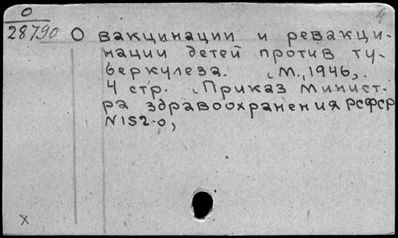 О
28790
О вакцинации и ревакци-
нации детей против ту-
беркулеза. М., 1946,
4 стр. Приказ Минист-
ра здравоохранения РСФСР
N152-о,
х